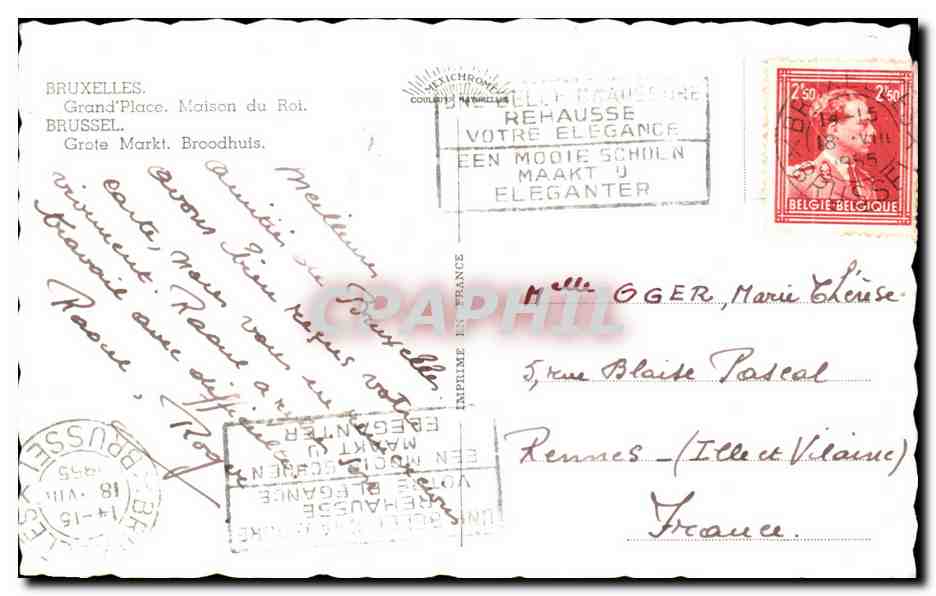 BRUXELLES.
Grand'Place. Maison du Roi.
BRUSSEL.
Grote Markt. Broodhuis.
MEXICHROME
COULEURS NATURELLES
UNE BELLE CHAUSSURE
REHAUSSE
VOTRE ELEGANCE
EEN MOOIE SCHOEN
MAAKT U
ELEGANTER
2F50 2F50
BRUXELLES
14-15
18 VIII
1955
BRUSSEL
BELGIE-BELGIQUE
Meilleures
amitiés de Bruxelles.
avons bien reçus votre
carte, nous vous en remercions
vivement. Raoul a
travail avec difficulté.
Raoul. Roger
IMPRIME EN FRANCE
CPAPHIL
Melle OGER, Marie Thérèse.
5, rue Blaise Pascal
Rennes - (Ille et Vilaine)
France.
UNE BELLE CHAUSSURE
REHAUSSE
VOTRE ELEGANCE
EEN MOOIE SCHOEN
MAAKT U
ELEGANTER
BRUXELLES
14-15
18 VIII
1955
BRUSSEL